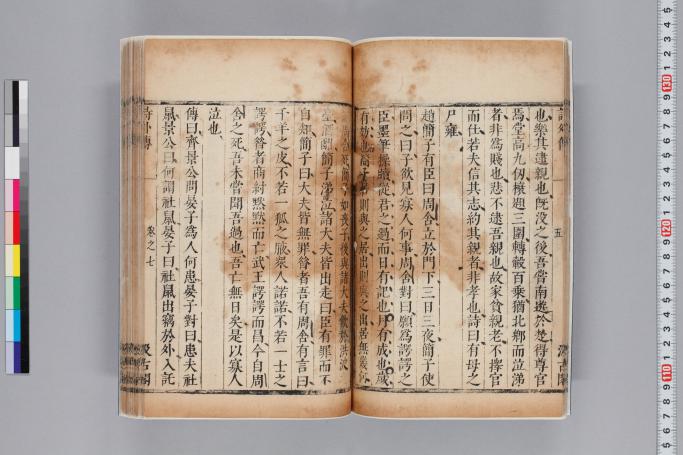 也樂其逮親也既沒之後吾嘗南遊於楚得尊官
焉堂高九仞榱題三圍轉轂百乘猶北鄉而泣涕
者非為賤也悲不逮吾親也故家貧親老不擇官
而仕若夫信其志約其親者非孝也詩曰有母之
尸雍
趙簡子有臣曰周舍立於門下三日三夜簡子使
問之曰子欲見寡人何事周舍對曰願為諤諤之
臣墨筆操牘從君之過而日有記也月有成也歲
有効也簡子居則與之居出則與之出居無幾何
而周舍死簡子如喪子後與諸大夫飲於洪波
臺酒酣簡子涕泣諸大夫皆出走曰臣有罪而不
自知簡子曰大夫皆無罪昔者吾有周舍有言曰
千羊之皮不若一狐之腋衆人諾諾不若一士之
諤諤昔者商紂默默而亡武王諤諤而昌今自周
舍之死吾未嘗聞吾過也吾亡無日矣是以寡人
泣也
傳曰齊景公問晏子為人何患晏子對曰患夫社
鼠景公曰何謂社鼠晏子曰社鼠出竊於外入託
詩外傳
卷之七
汲古閣
五
汲古閣
5 4 3 2 1 130 9 8 7 6 5 4 3 2 1 120 9 8 7 6 5 4 3 2 1 110 9 8 7 6 5